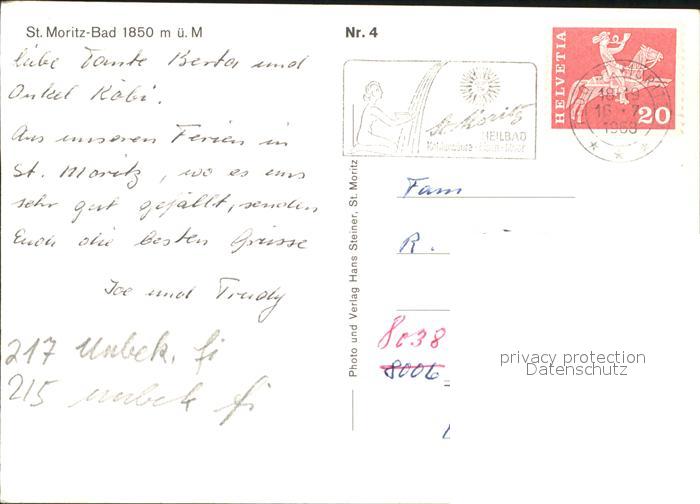 St. Moritz-Bad 1850 m ü. M
Nr. 4
liebe Tante Berta und
Onkel Köbi.
Aus unseren Ferien in
St. Moritz, wo es uns
sehr gut gefällt, senden
Euch die besten Grüsse
Joe und Trudy
217 Unbek. fi
215 unbek fi
Photo und Verlag Hans Steiner, St. Moritz
St. Moritz
HEILBAD
HELVETIA
20
18-19
1968
Fam
R.
8038
8006
privacy protection
Datenschutz